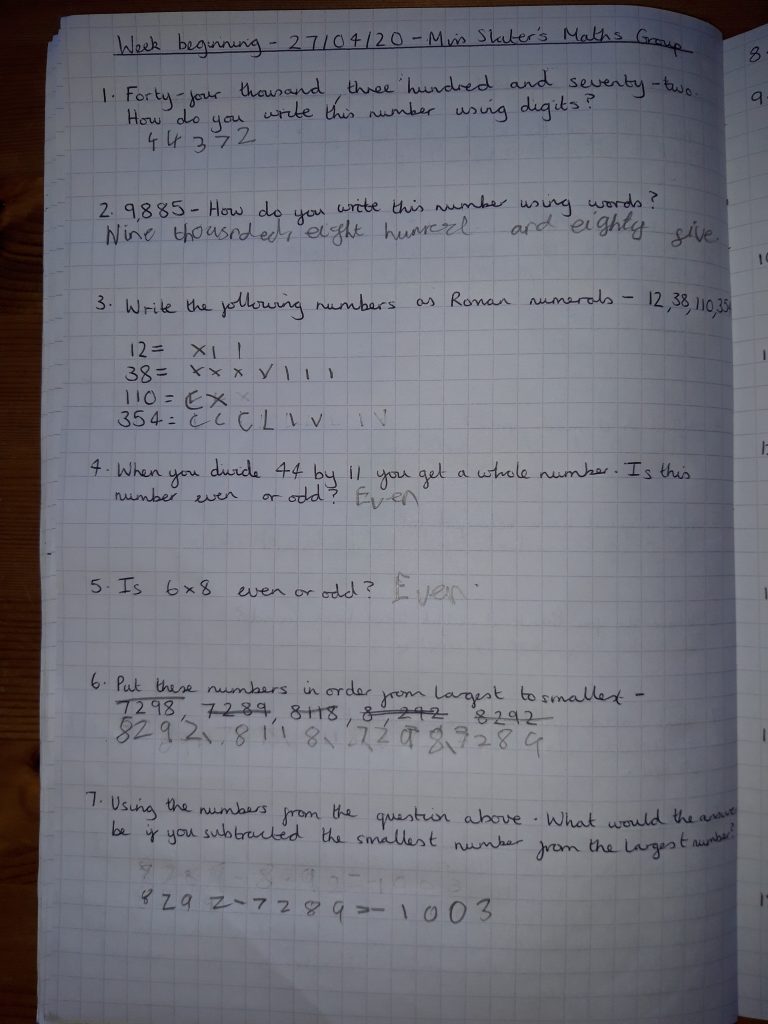 Week beginning - 27/04/20 - Miss Slater's Maths Group
1. Forty-four thousand, three hundred and seventy-two.
How do you write this number using digits?
44372
2. 9,885 - How do you write this number using words?
Nine thouasnded, eight hunred and eighty give
3. Write the following numbers as Roman numerals - 12, 38, 110, 354
12 = XII
38 = XXXVIII
110 = CX
354 = CCCLIV
4. When you divide 44 by 11 you get a whole number. Is this
number even or odd? Even
5. Is 6x8 even or odd? Even
6. Put these numbers in order from largest to smallest -
7298, 7289, 8118, 8,292 8292
8292, 8118, 7298, 7289
7. Using the numbers from the question above. What would the answer
be if you subtracted the smallest number from the largest number?
8292-7289=-1003
8
9